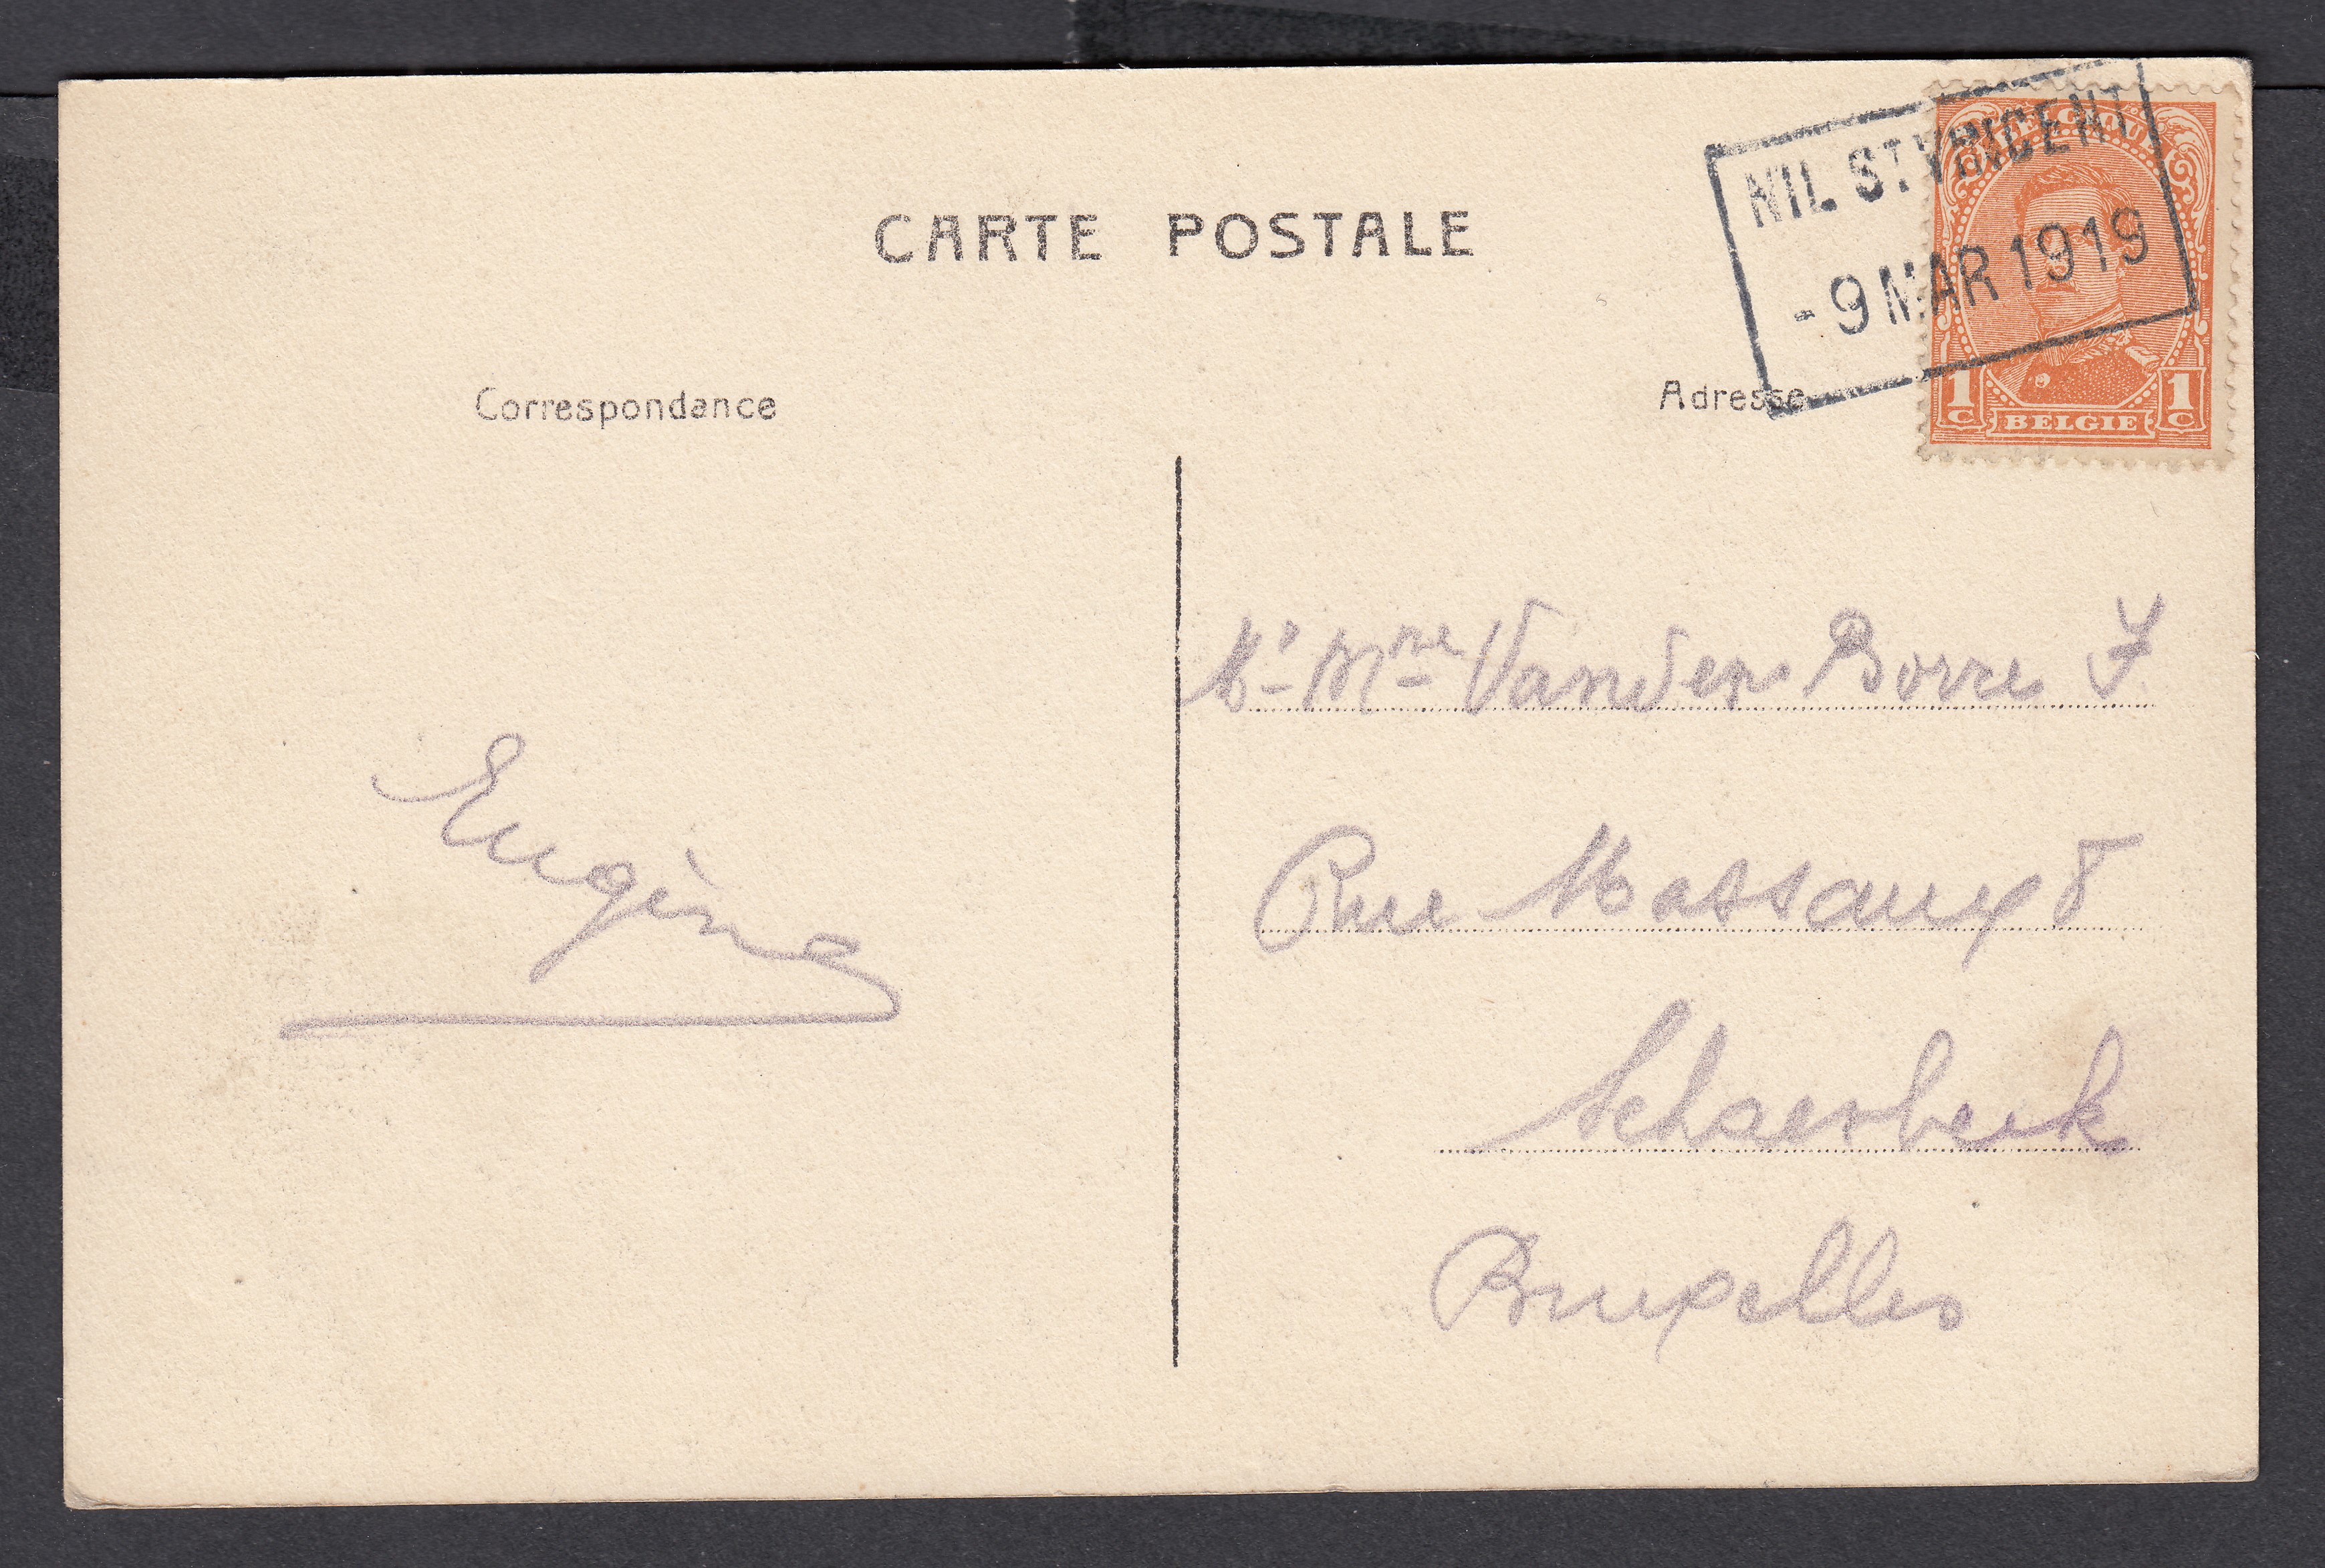 CARTE POSTALE
NIL ST VINCENT
- 9 MAR 1919
BELGIQUE
1 C
1 C
BELGIE
Correspondance
Adresse
Mr Mme Vanden Borre F
Rue Massaux 8
Schaerbeek
Bruxelles
Eugène